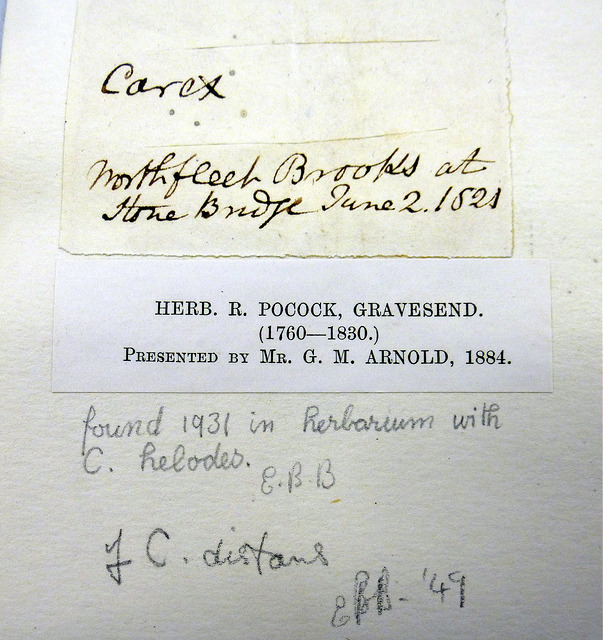 Carex
Northfleet Brooks at
Stone Bridge June 2. 1821
HERB. R. POCOCK, GRAVESEND.
(1760—1830.)
PRESENTED BY MR. G. M. ARNOLD, 1884.
found 1931 in herbarium with
C. helodes.
E.B.B
C. distans
'49